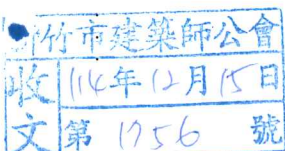 新竹市建築師公會
收文
114年12月15日
第 1756 號